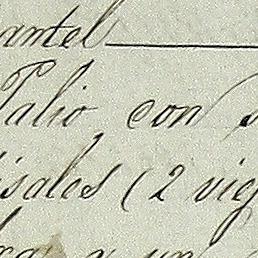 antel
Palio con s
isales (2 vie
y un